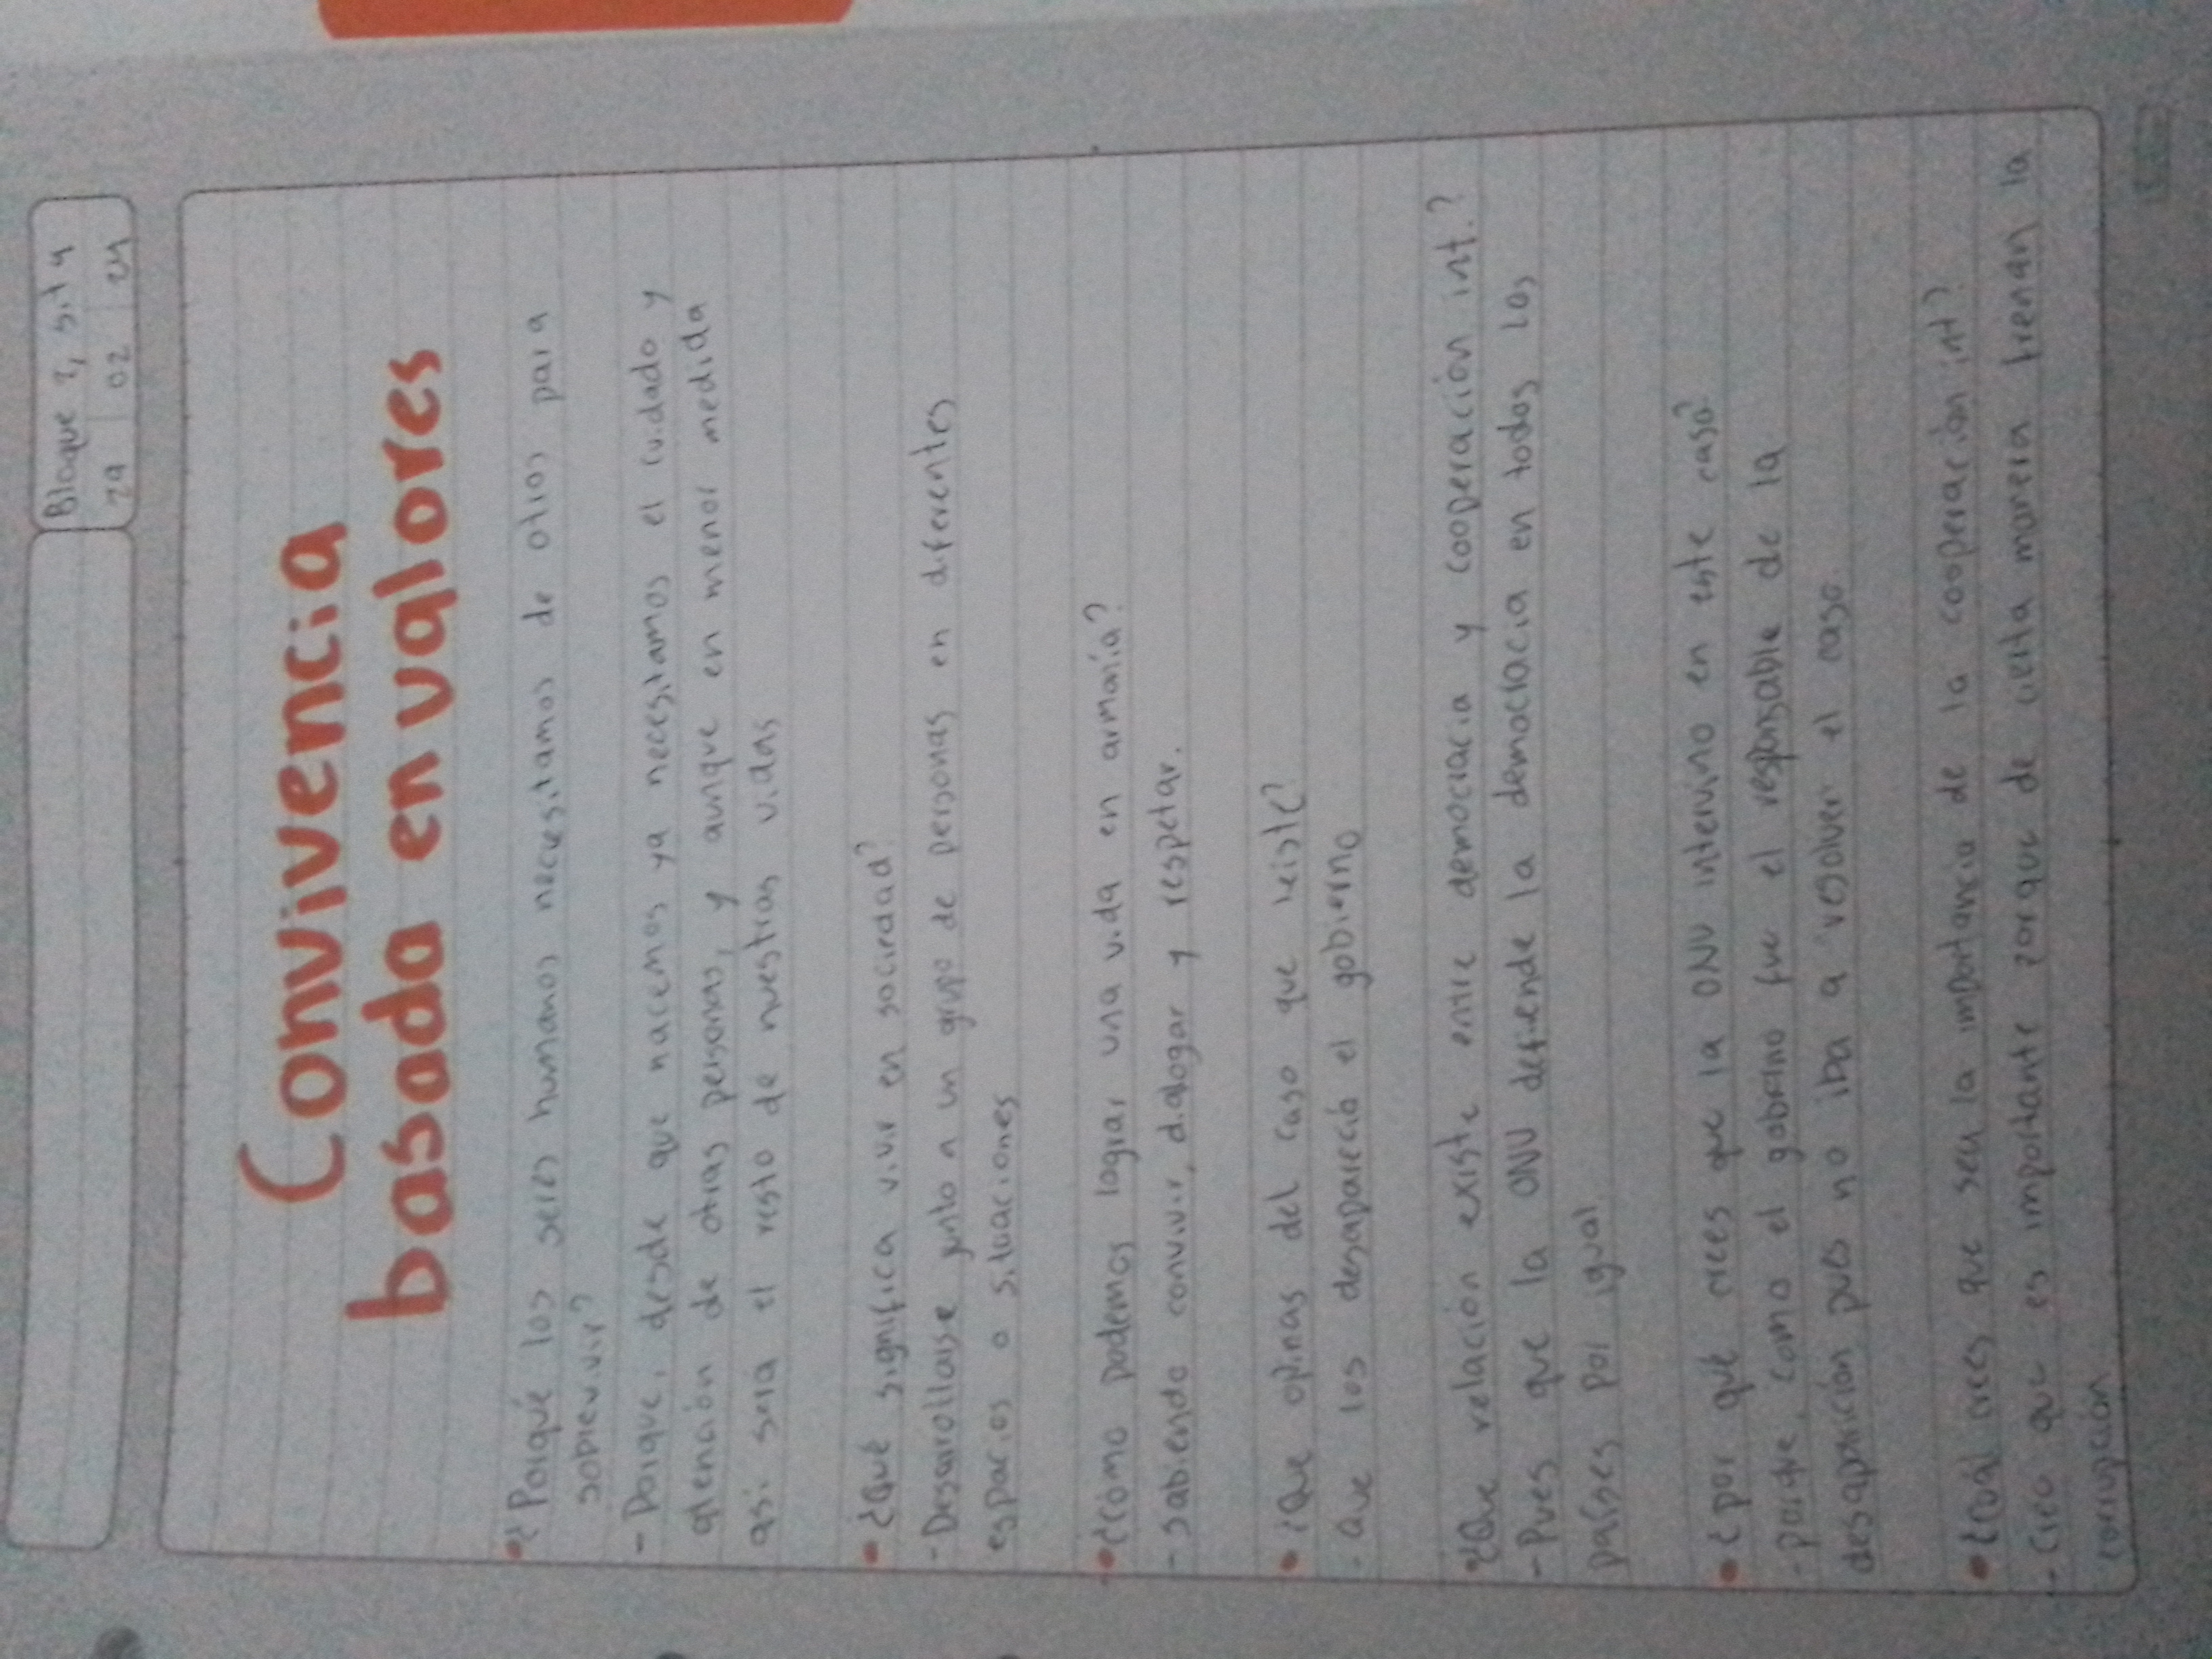 Bloque 2, sit 4
29 02 24
Convivencia
basada en valores
• ¿Porqué los seres humanos necesitamos de otros para
sobrevivir?
- Porque, desde que nacemos ya necesitamos el cuidado y
atención de otras personas, y aunque en menor medida
asi sera el resto de nuestras vidas
• ¿Qué significa vivir en sociedad?
- Desarrollarse junto a un grupo de personas en diferentes
espacios o situaciones
• ¿Cómo podemos lograr una vida en armonía?
- sabiendo convivir, dialogar y respetar.
• ¿Que opinas del caso que leiste?
- Que los desapareció el gobierno
¿Que relación existe entre democracia y cooperación int.?
- Pues que la ONU defiende la democracia en todos los
países por igual
• ¿por qué crees que la ONU intervino en este caso?
- porque, como el gobierno fue el responsable de la
desaparición pues no iba a resolver el caso.
• ¿Cual crees que sea la importancia de la cooperación int?
- Creo que es importante porque de cierta manera frenan la
corrupción